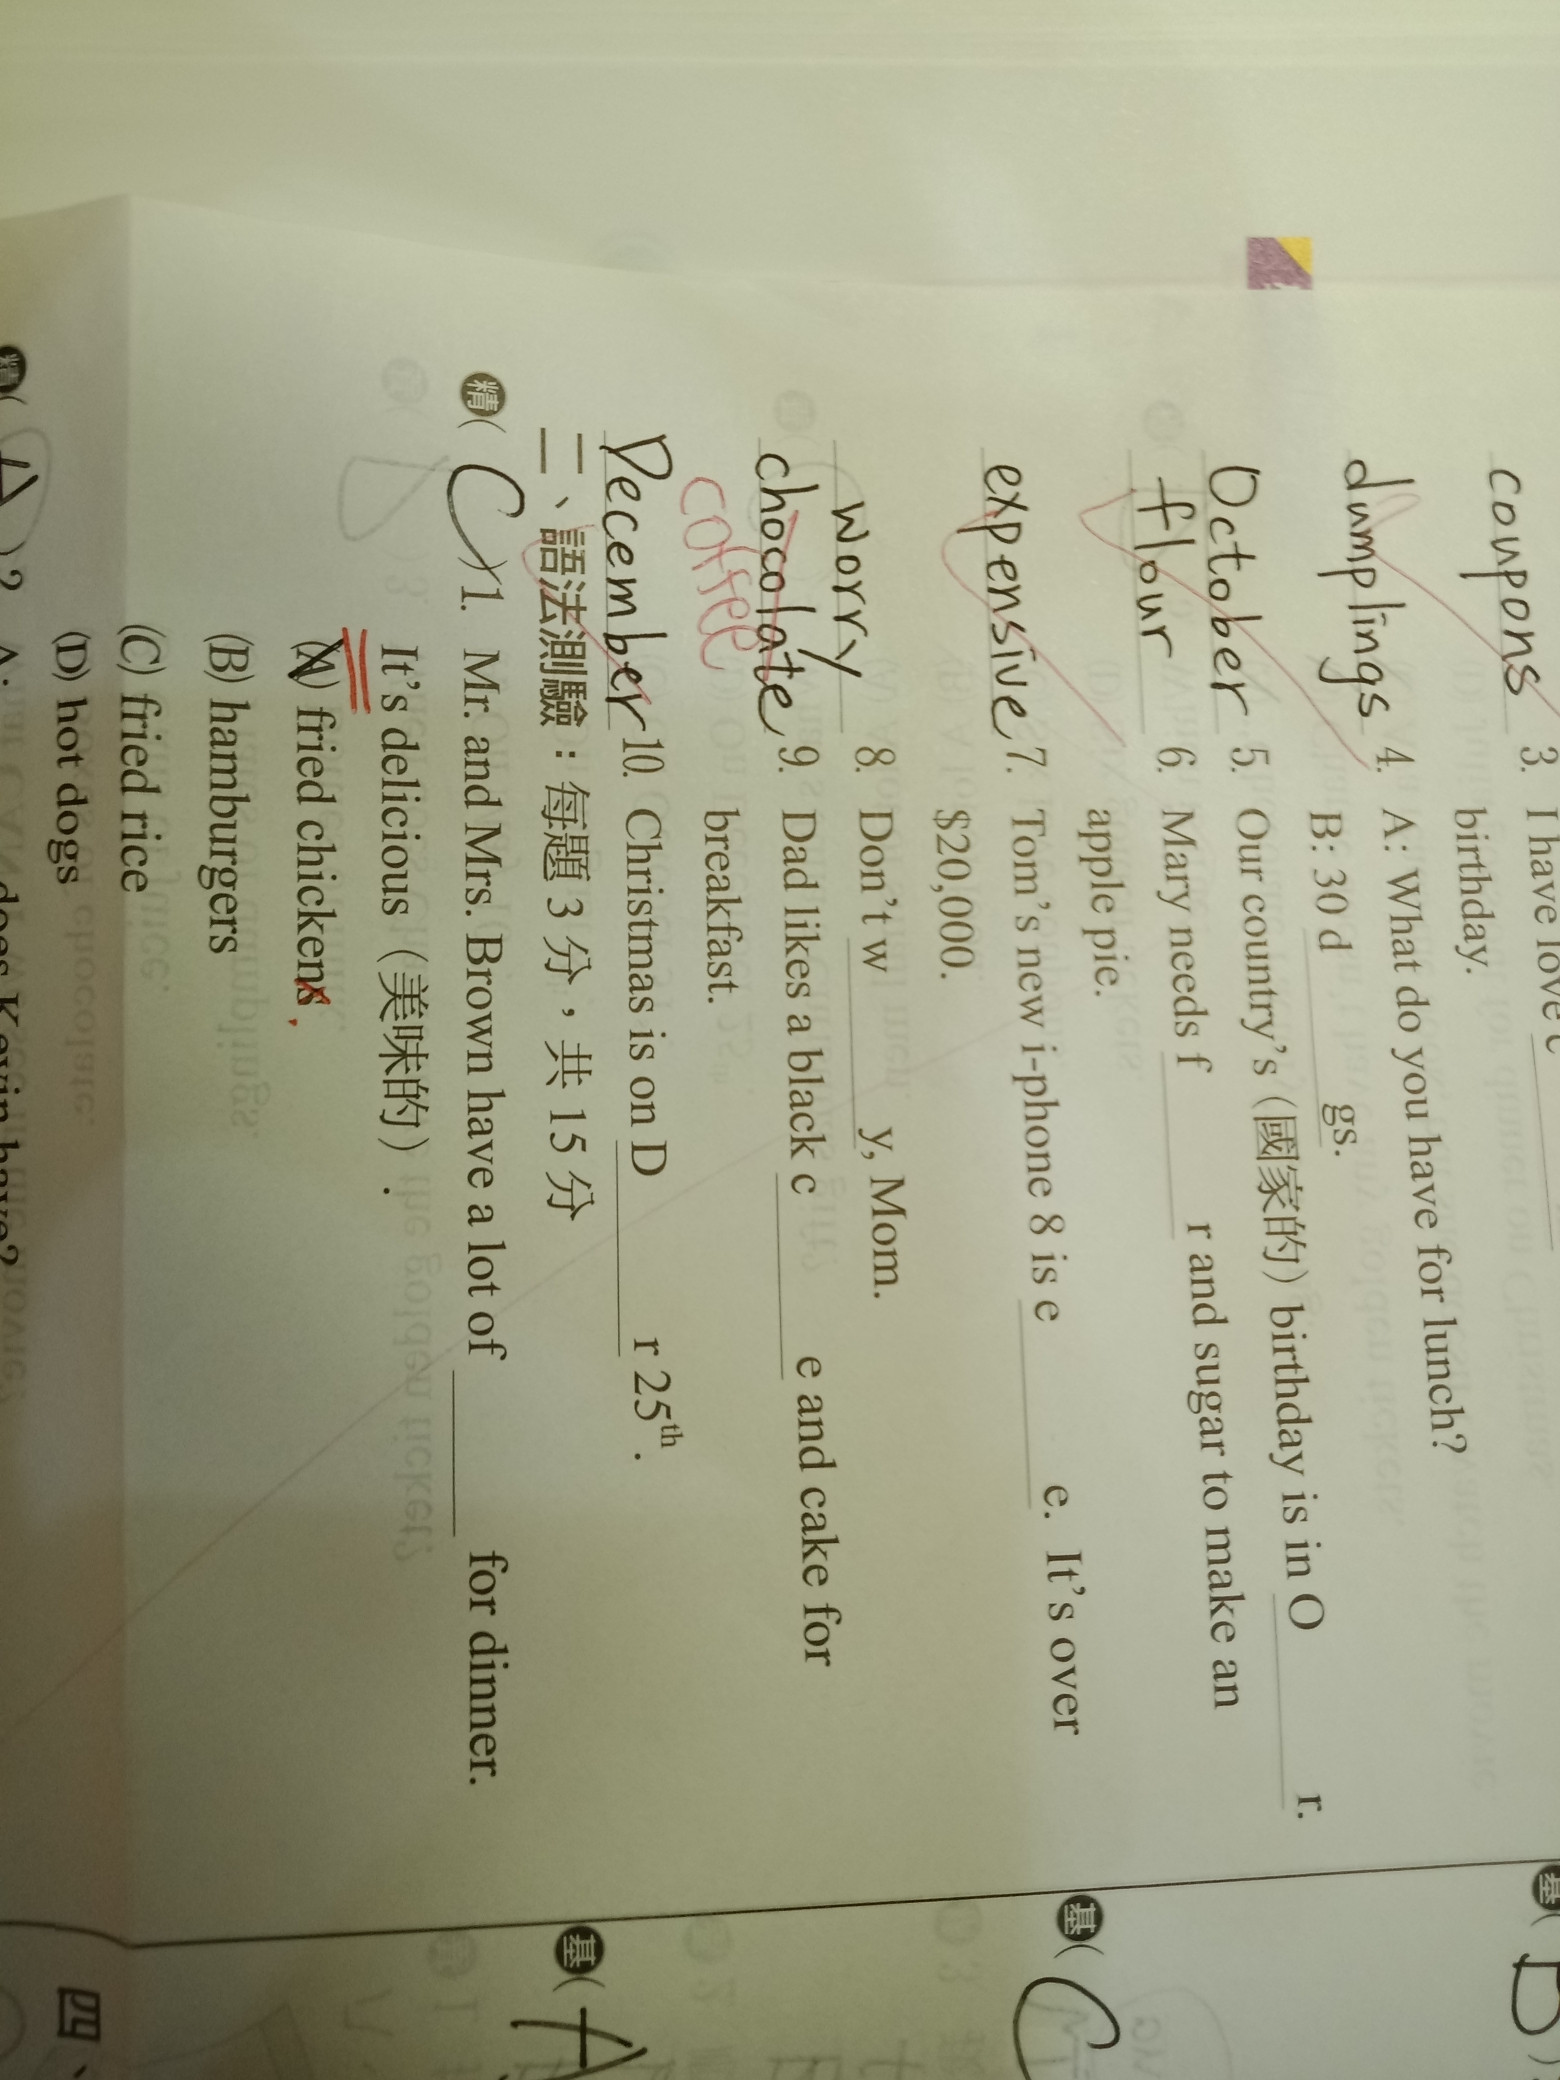 coupons 3. I have love c
birthday.
dumplings 4. A: What do you have for lunch?
B: 30 d gs.
October 5. Our country's (國家的) birthday is in O r.
flour 6. Mary needs f r and sugar to make an
apple pie.
expensive 7. Tom's new i-phone 8 is e e. It's over
$20,000.
worry 8. Don't w y, Mom.
chocolate 9. Dad likes a black c e and cake for
coffee breakfast.
December 10. Christmas is on D r 25th.
二、語法測驗：每題 3 分，共 15 分
精 ( C ) 1. Mr. and Mrs. Brown have a lot of for dinner.
It's delicious (美味的) .
(A) fried chickens
(B) hamburgers
(C) fried rice
(D) hot dogs
精 ( A ) 2. A: does Kevin have?
基 ( B )
基 ( C
基 ( A
四、